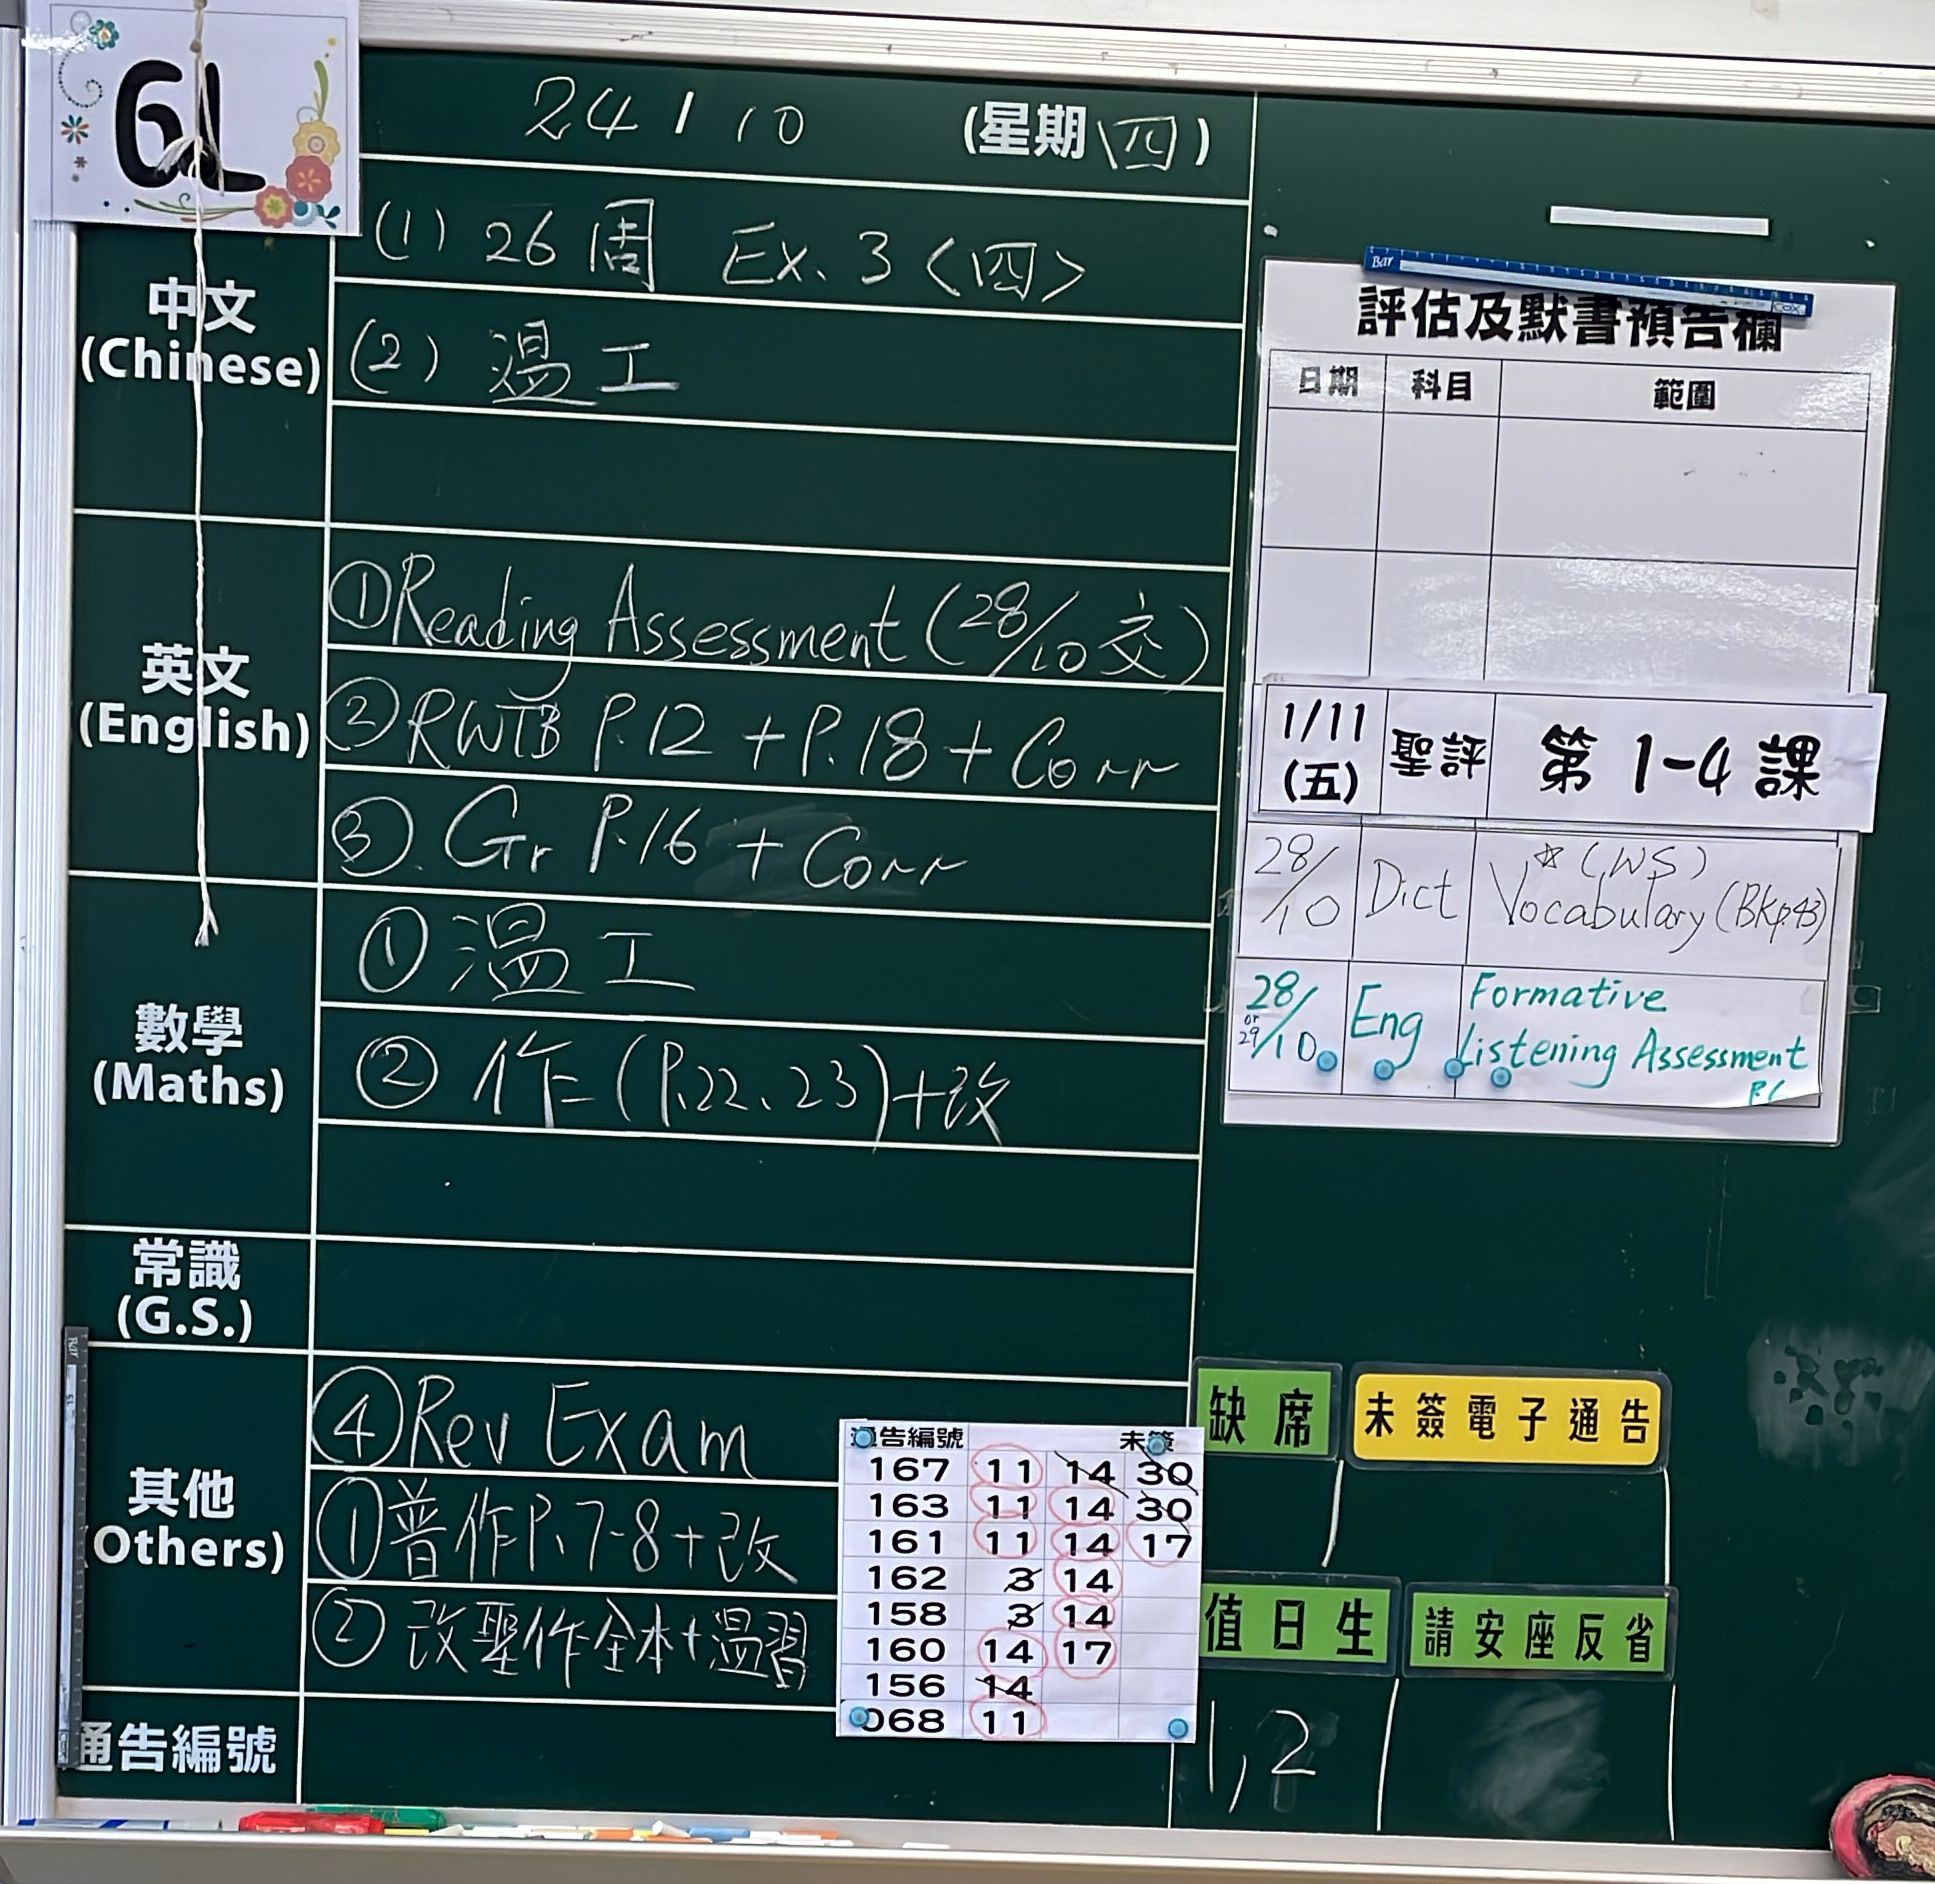 6L
24/10 (星期四)
中文
(Chinese)
(1) 26周 Ex.3<四>
(2) 温工
英文
(English)
①Reading Assessment (28/10 交)
②RWTB P.12 + P.18 + Corr
③. Gr P.16 + Corr
數學
(Maths)
① 温工
② 作=(P.22、23)+改
常識
(G.S.)
其他
(Others)
④Rev Exam
①普作P.7-8+改
②改聖作全本+温習
通告編號
通告編號 未簽
167 11 14 30
163 11 14 30
161 11 14 17
162 3 14
158 3 14
160 14 17
156 14
068 11
Bar
COX
評估及默書預告欄
日期 科目 範圍
1/11 (五) 聖評 第1-4課
28/10 Dict ☆(WS) Vocabulary (BKp.43)
28/10 or 29 Eng Formative Listening Assessment P.6
缺席
未簽電子通告
值日生
請安座反省
1,2